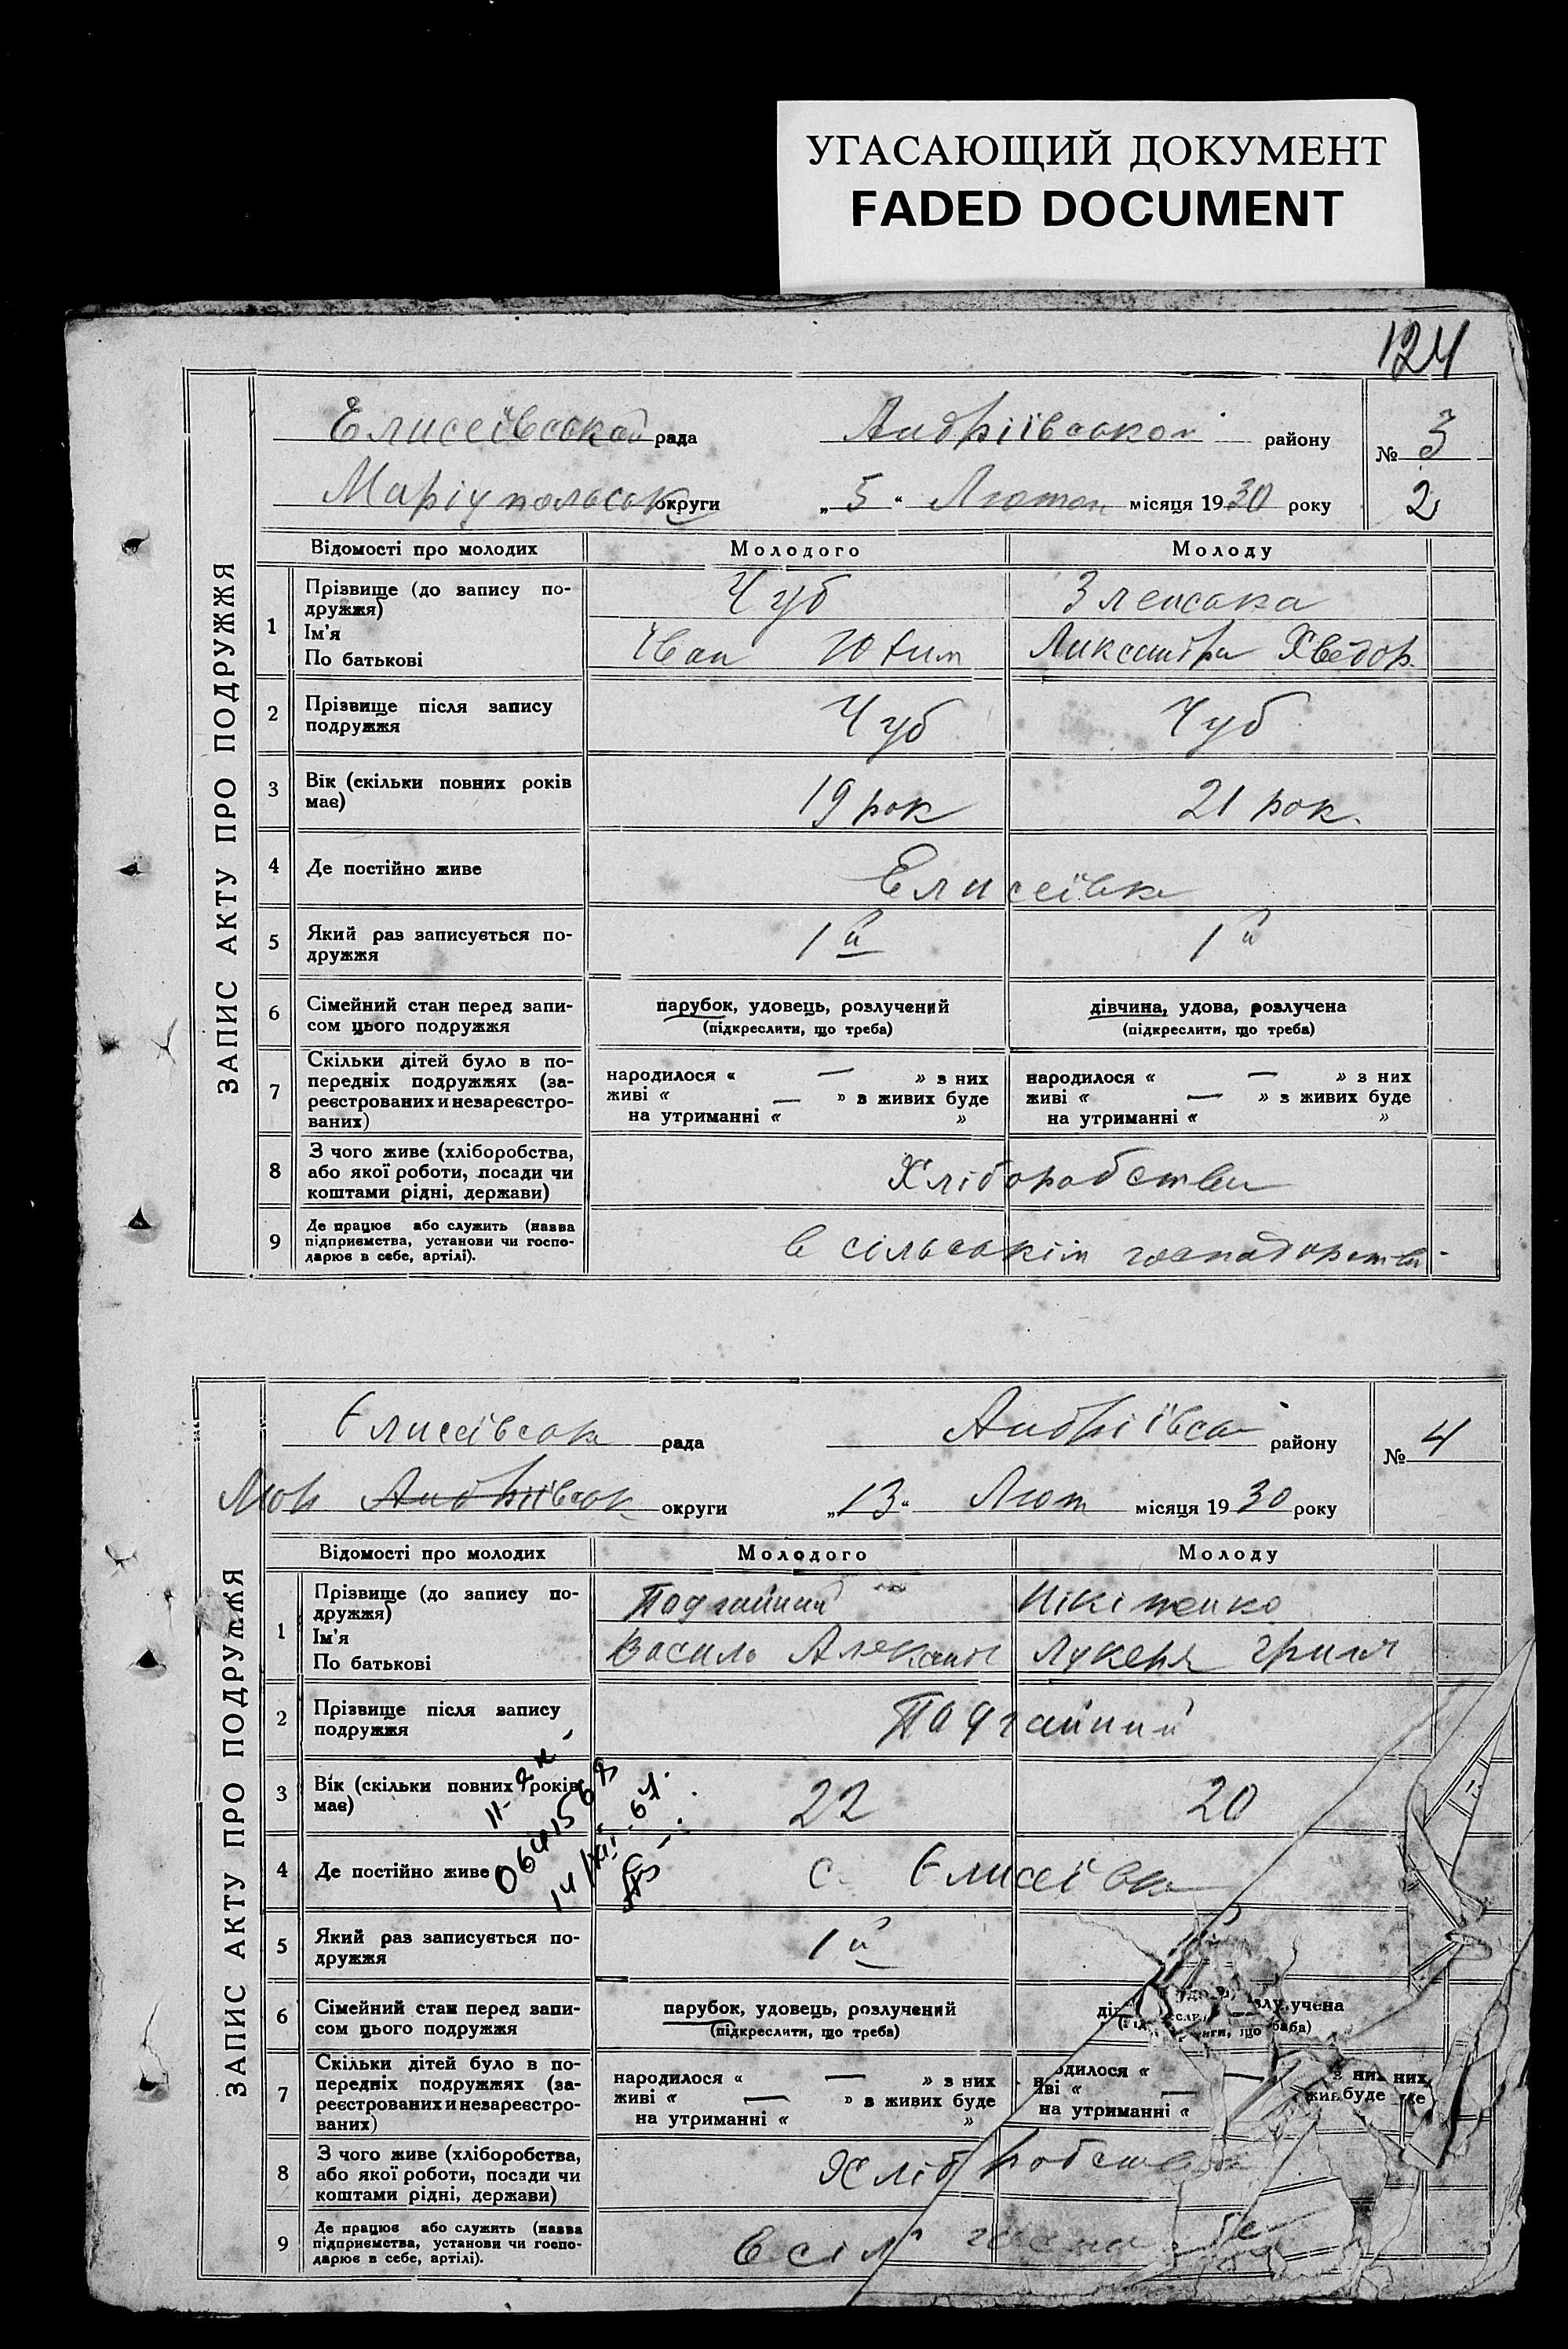 УГАСАЮЩИЙ ДОКУМЕНТ
FADED DOCUMENT
124
ЗАПИС АКТУ ПРО ПОДРУЖЖЯ
Елисеївської рада Андріївської району № 3
Маріупольськ округи „5“ Лютого місяця 1930 року 2
Відомості про молодих Молодого Молоду
1 Прізвище (до запису по-
дружжя) Чуб
Ім'я
По батькові Іван Юхим Ликсандра Хведор.
2 Прізвище після запису
подружжя Чуб Чуб
3 Вік (скільки повних років
має) 19 рок 21 рок.
4 Де постійно живе Елисеївка
5 Який раз записується по-
дружжя 1й 1й
6 Сімейний стан перед запи- парубок, удовець, розлучений дівчина, удова, розлучена
сом цього подружжя (підкреслити, що треба) (підкреслити, що треба)
7 Скільки дітей було в по-
передніх подружжях (за- народилося « — » з них народилося « — » з них
реєстрованих и незареєстро- живі « — » з живих буде живі « — » з живих буде
ваних) на утриманні « » на утриманні « »
8 З чого живе (хліборобства,
або якої роботи, посади чи Хліборобства
коштами рідні, держави)
9 Де працює або служить (назва
підприємства, установи чи госпо- в сільськім господарстві
дарює в себе, артілі).
ЗАПИС АКТУ ПРО ПОДРУЖЖЯ
Єлисеївська рада Андріївск району № 4
Мор Андріївськ округи „13“ Лют місяця 1930 року
Відомості про молодих Молодого Молоду
1 Прізвище (до запису по-
дружжя) Подгайний Нікітенко
Ім'я
По батькові Василь Александ Лукеря Григ
2 Прізвище після запису
подружжя Подгайний
3 Вік (скільки повних років
має) 22 20
4 Де постійно живе с. Єлисеївка
5 Який раз записується по-
дружжя 1й
6 Сімейний стан перед запи- парубок, удовець, розлучений
сом цього подружжя (підкреслити, що треба)
7 Скільки дітей було в по-
передніх подружжях (за- народилося « — » з них
реєстрованих и незареєстро- живі « — » з живих буде
ваних) на утриманні « » на утриманні «
8 З чого живе (хліборобства,
або якої роботи, посади чи Хліборобства
коштами рідні, держави)
9 Де працює або служить (назва
підприємства, установи чи госпо- в сіл
дарює в себе, артілі).